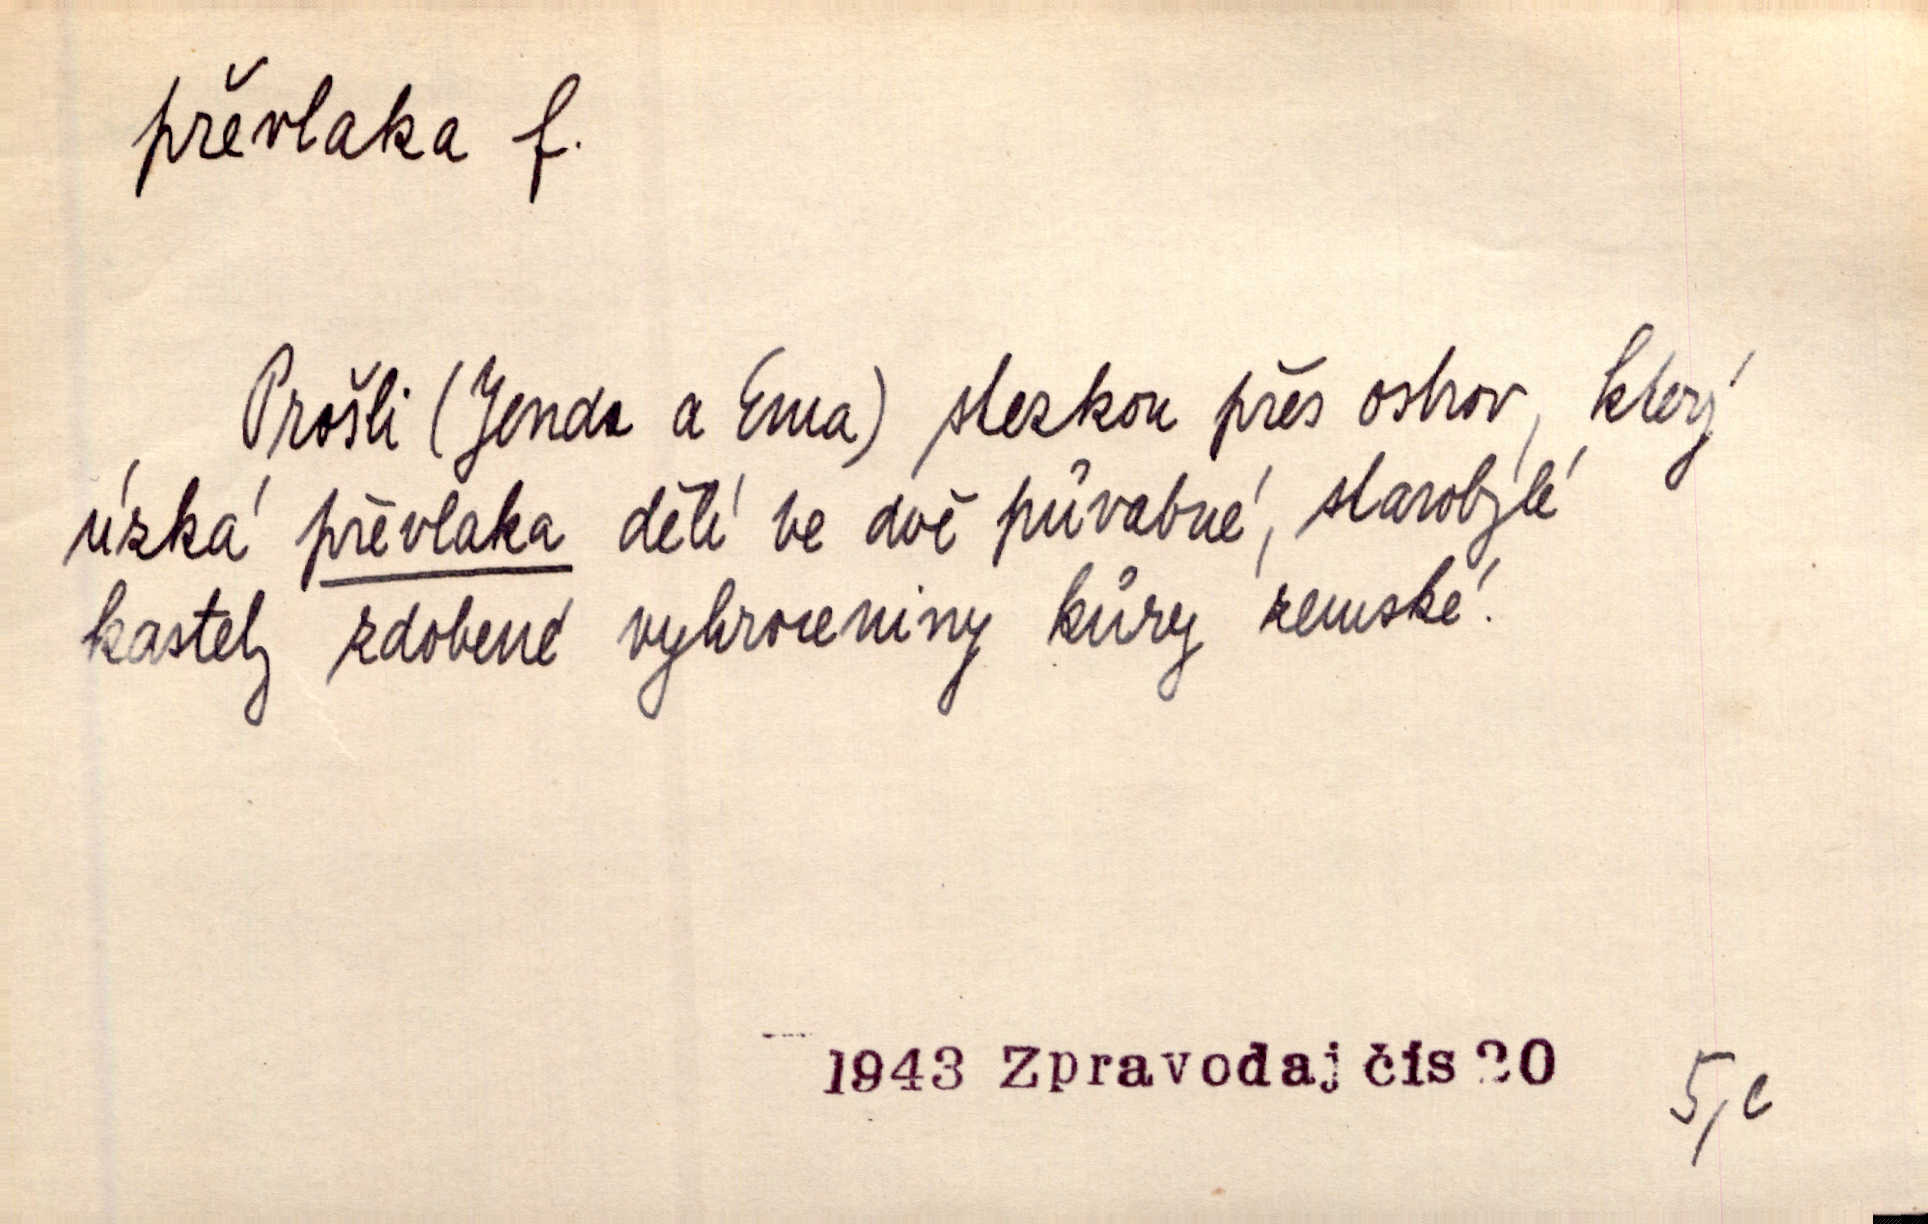 převlaka f.
Prošli (Jenda a Ema) stezkou přes ostrov, který
úzká převlaka dělí ve dvě půvabné, starobylé
kastely zdobené vyhroceniny kůry zemské.
1943 Zpravodaj čís 20
5,c